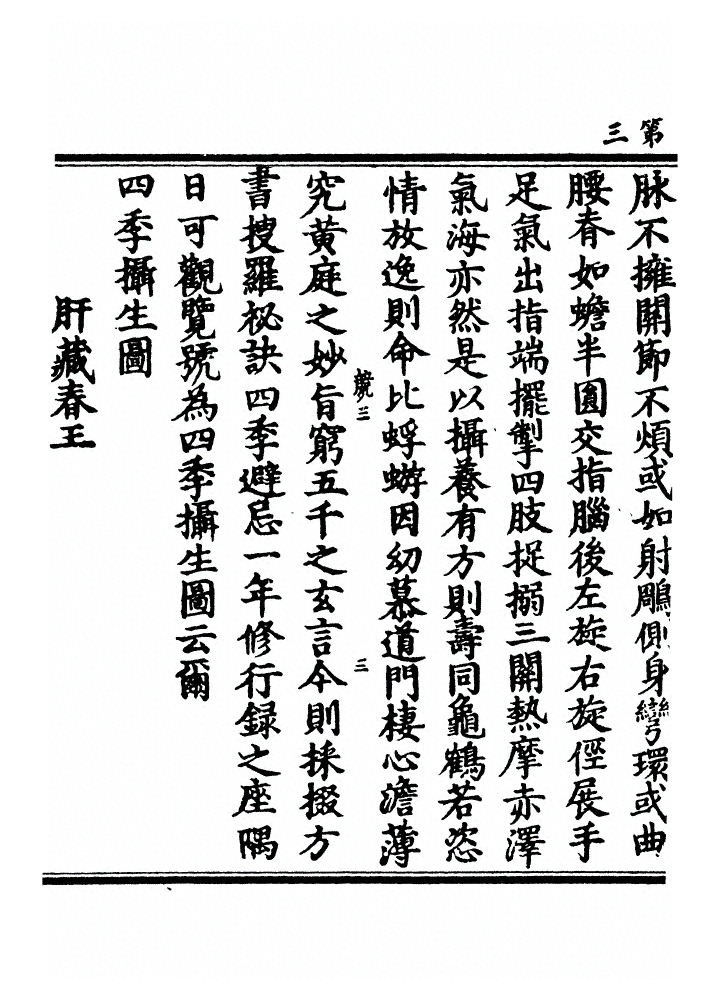 第三
脉不擁關節不煩或如射鵰側身彎環或曲
腰脊如蟾半圓交指腦後左旋右旋俓展手
足氣出指端擺掣四肢捉搦三關熱摩赤澤
氣海亦然是以攝養有方則壽同龜鶴若恣
情放逸則命比蜉蝣因幼慕道門棲心澹薄
三
究黄庭之妙旨窮五千之玄言今則採掇方
書搜羅祕訣四季避忌一年修行録之座隅
日可觀覽號為四季攝生圖云爾
四季攝生圖
肝藏春王